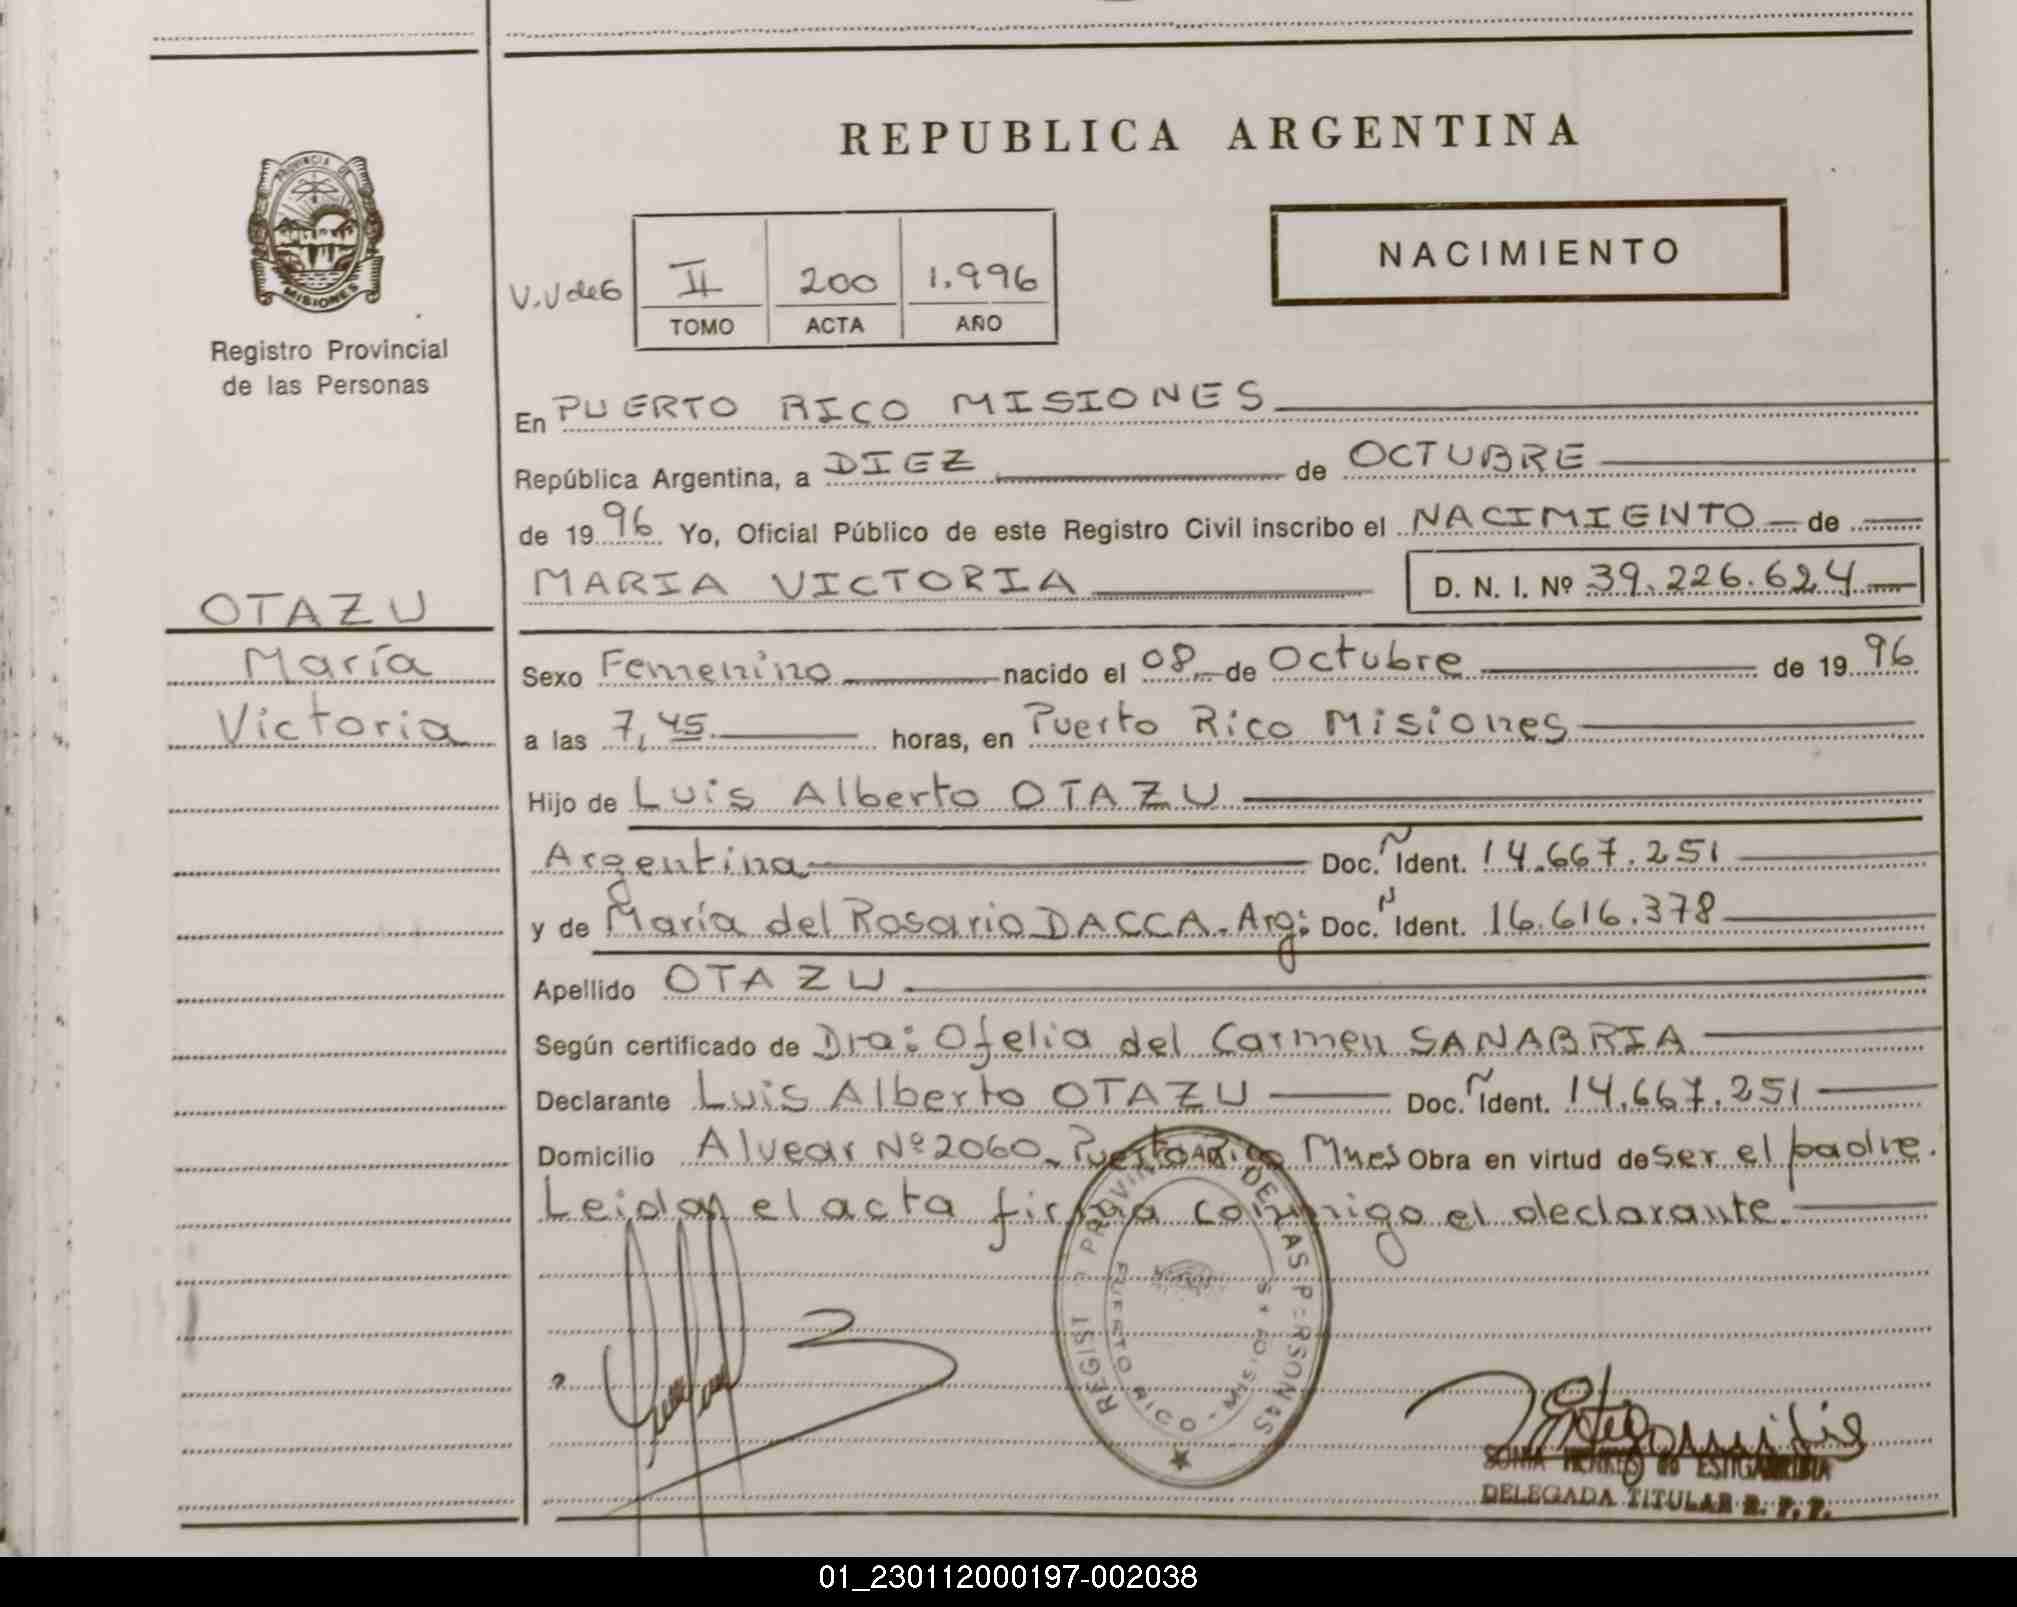 REPUBLICA ARGENTINA
PROVINCIA DE
MISIONES
Registro Provincial
de las Personas
NACIMIENTO
V.V de 6
II 200 1.996
TOMO ACTA AÑO
En PUERTO RICO MISIONES
República Argentina, a DIEZ de OCTUBRE
de 19 96 Yo, Oficial Público de este Registro Civil inscribo el NACIMIENTO de
MARIA VICTORIA D. N. I. Nº 39.226.624
OTAZU
María
Victoria
Sexo Femenino nacido el 08 de Octubre de 19 96
a las 7,45 horas, en Puerto Rico Misiones
Hijo de Luis Alberto OTAZU
Argentina Doc. Ident. 14.667.251
y de María del Rosario DACCA. Arg: Doc. Ident. 16.616.378
Apellido OTAZU
Según certificado de Dra: Ofelia del Carmen SANABRIA
Declarante Luis Alberto OTAZU Doc. Ident. 14.667.251
Domicilio Alvear Nº 2060. Puerto Rico Mnes Obra en virtud de ser el padre.
Leida el acta firma conmigo el declarante.
REGIST PROVIN DE LAS PERSONAS
PUERTO RICO - MISIONES
SONIA de ESTIGARRIBIA
DELEGADA TITULAR R. P. P.
01_230112000197-002038